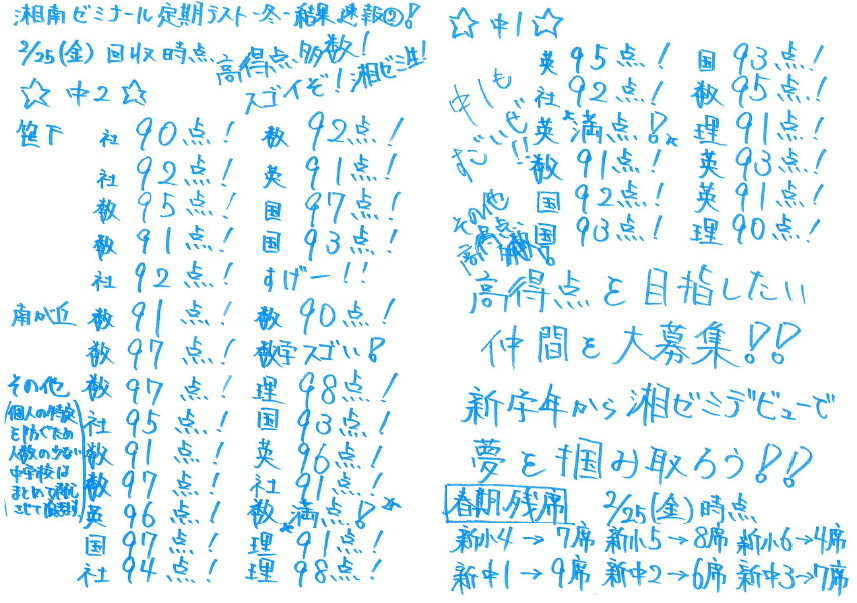 湘南ゼミナール定期テスト-冬-結果速報②!
2/25(金)回収時点
高得点多数!
スゴイぞ!湘ゼミ生!
☆中2☆
笹下 社90点! 数92点!
社92点! 英91点!
数95点! 国97点!
数91点! 国93点!
社92点! すげー!!
南が丘 数91点! 数90点!
数97点! 数学スゴい!
その他 数97点! 理98点!
(個人の特定を防ぐため人数の少ない中学校はまとめて
させて
社95点! 国93点!
数91点! 英96点!
数97点! 社91点!
英96点! 数満点!
国97点! 理91点!
社94点! 理98点!
☆中1☆
中1も
すごいぜ!!
英95点! 国93点!
社92点! 数95点!
英満点! 理91点!
数91点! 英93点!
国92点! 英91点!
国93点! 理90点!
その他
高得点
高得点を目指したい
仲間を大募集!!
新学年から湘ゼミデビューで
夢を掴み取ろう!!
春期残席 2/25(金)時点
新小4→7席 新小5→8席 新小6→4席
新中1→9席 新中2→6席 新中3→7席